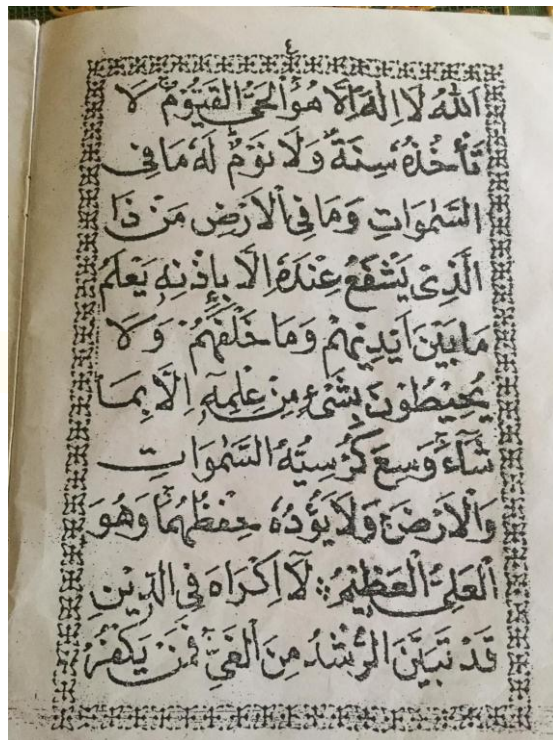 ٤
اَللّٰهُ لَا اِلٰهَ اِلَّا هُوَ اَلْحَيُّ الْقَيُّوْمُ لَا
تَأْخُذُهُ سِنَةٌ وَلَا نَوْمٌ لَهُ مَا فِى
السَّمٰوَاتِ وَمَا فِى الْاَرْضِ مَنْ ذَا
الَّذِىْ يَشْفَعُ عِنْدَهُ اِلَّا بِاِذْنِهِ يَعْلَمُ
مَا بَيْنَ اَيْدِيْهِمْ وَمَا خَلْفَهُمْ وَلَا
يُحِيْطُوْنَ بِشَىْءٍ مِنْ عِلْمِهٖ اِلَّا بِمَا
شَآءَ وَسِعَ كُرْسِيُّهُ السَّمٰوَاتِ
وَالْاَرْضَ وَلَا يَؤُدُهُ حِفْظُهُمَا وَهُوَ
الْعَلِىُّ الْعَظِيْمُ ۞ لَآ اِكْرَاهَ فِى الدِّيْنِ
قَدْ تَبَيَّنَ الرُّشْدُ مِنَ الْغَىِّ فَمَنْ يَكْفُرْ